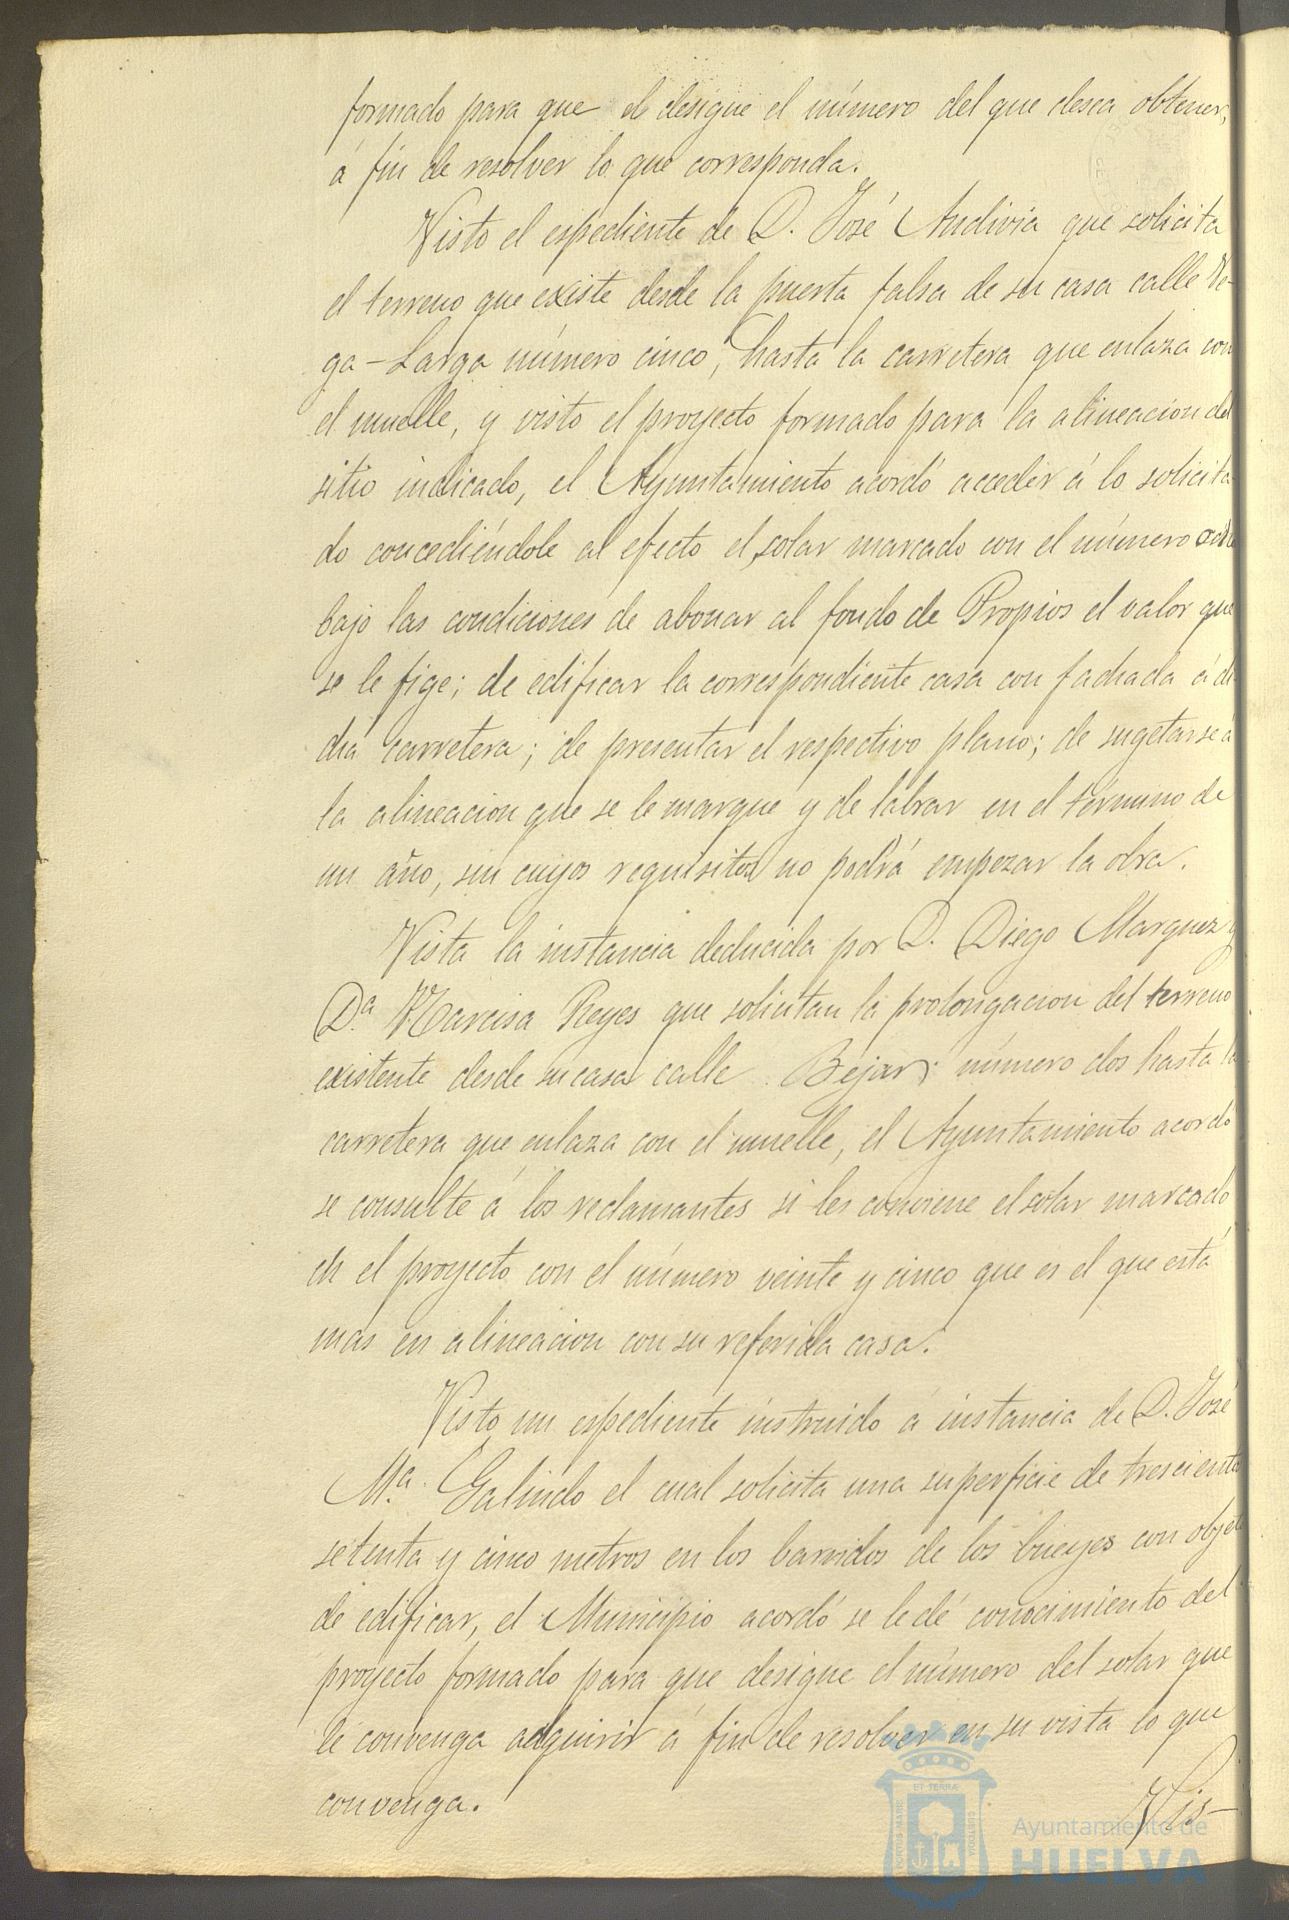 formado para que el desigue el número del que desea obtener,
á fin de resolver lo que corresponda.
Visto el espediente de D. José Andivia que solicita
el terreno que existe desde la puerta falsa de su casa calle Ve-
ga-Larga número cinco, hasta la carretera que enlaza con
el muelle, y visto el proyecto formado para la alineacion del
sitio indicado, el Ayuntamiento acordó acceder á lo solicita-
do concediéndole al efecto el solar marcado con el número
bajo las condiciones de abonar al fondo de Propios el valor que
se le fige; de edificar la correspondiente casa con fachada á di-
cha carretera; de presentar el respectivo plano; de sugetarse á
la alineacion que se le marque y de labrar en el término de
un año, sin cuyos requisitos no podrá empezar la obra.
Vista la instancia deducida por D. Diego Marquez y
D.ª Narcisa Reyes que solicitan la prolongacion del terreno
existente desde su casa calle Bejar, número dos hasta la
carretera que enlaza con el muelle, el Ayuntamiento acordó
se consulte á los reclamantes si les conviene el solar marcado
en el proyecto con el número veinte y cinco que es el que está
mas en alineacion con su referida casa.
Visto un espediente instruido á instancia de D. José
M.ª Galindo el cual solicita una superficie de trescientos
setenta y cinco metros en los de los bueyes con objeto
de edificar, el Municipio acordó se le dé conocimiento del
proyecto formado para que desigue el número del solar que
le convenga adquirir á fin de resolver en su vista lo que
convenga. Vis-
PORTUS MARIS ET TERRÆ CUSTODIA
Ayuntamiento de
HUELVA